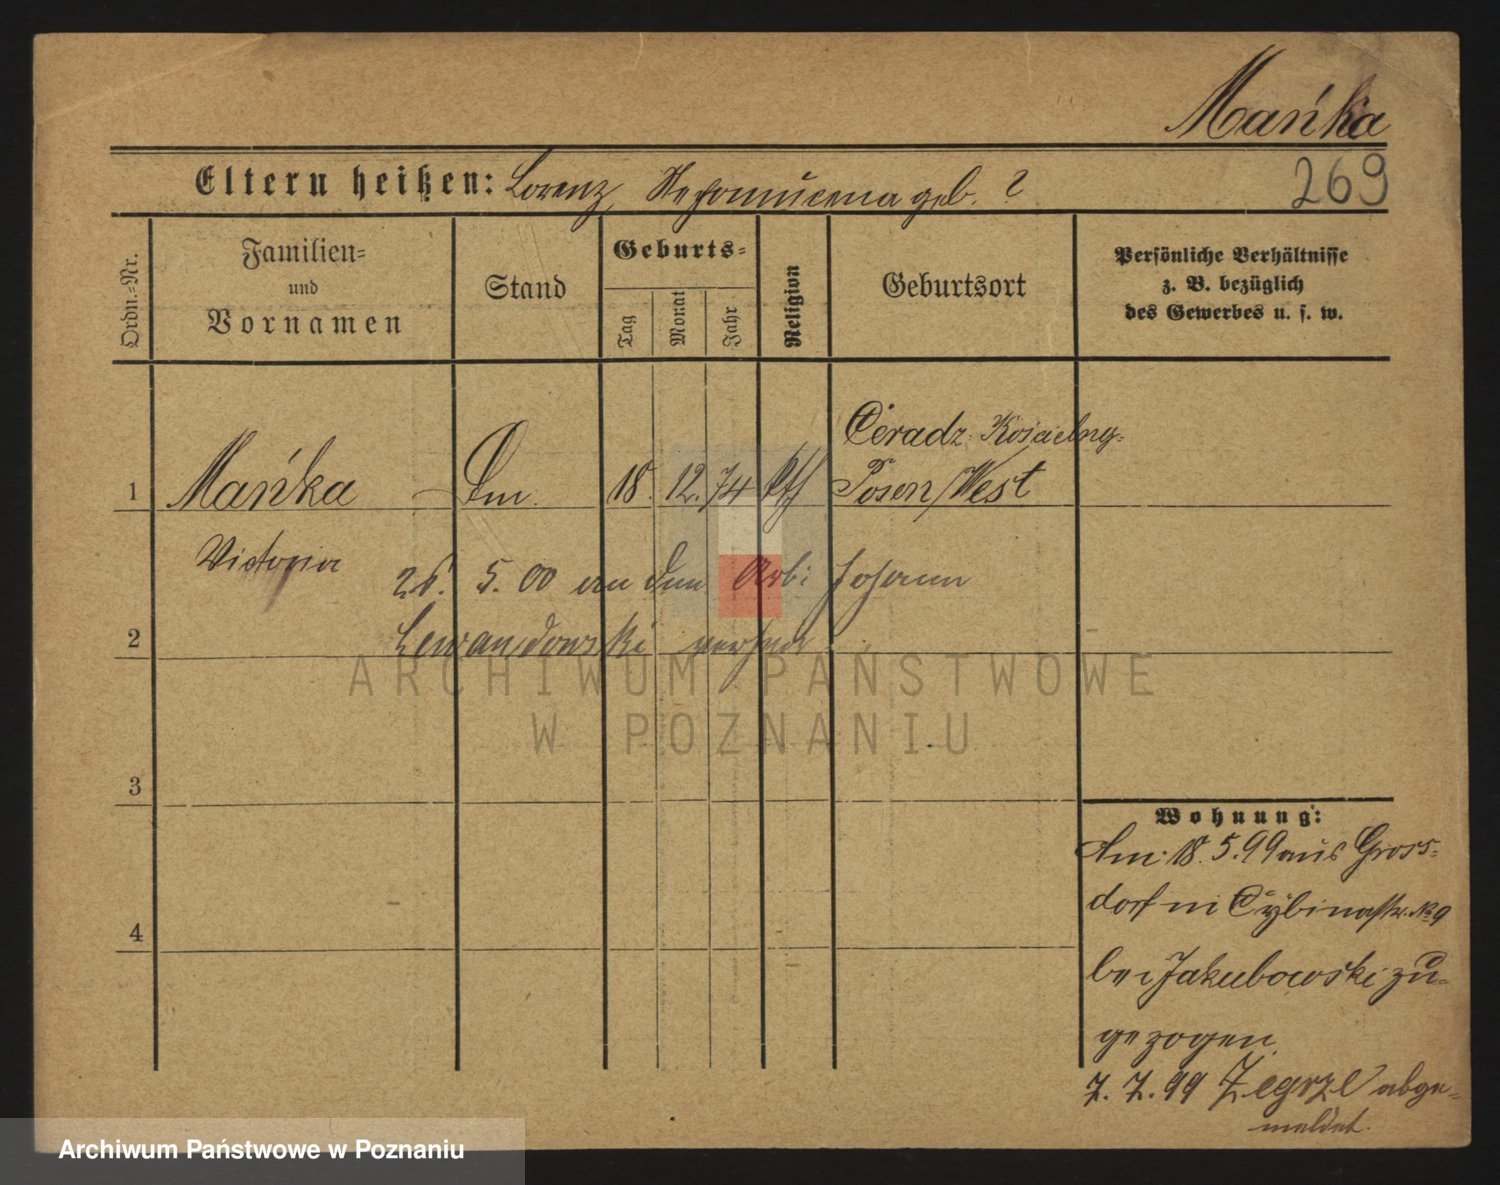 Mańka
269
Eltern heißen: Lorenz, Nepomucena geb. ?
Ordn.-Nr.
Familien-
und
Vornamen
Stand
Geburts-
Tag
Monat
Jahr
Religion
Geburtsort
Persönliche Verhältnisse
z. B. bezüglich
des Gewerbes u. s. w.
Ceradz. Kościelny-
1 Mańka 18. 12. 74 kth Posen/West
Victoria
26. 5. 00 an den Arb. Johann
2
Lewandowski verheir.
ARCHIWUM PAŃSTWOWE
W POZNANIU
3
4
Wohnung:
Am 18. 5. 99 aus Gross-
dorf in Cybinastr. No 9
bei Jakubowski zu-
gezogen.
7. 7. 99 Zegrze abge-
meldet.
Archiwum Państwowe w Poznaniu